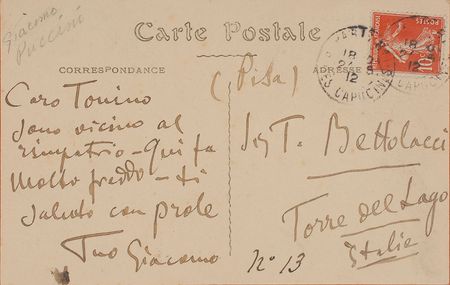 Giacomo
Puccini
Carte Postale
CORRESPONDANCE
ADRESSE
(Pisa)
Caro Tonino
sono vicino al
rimpatrio - Qui fa
molto freddo - ti
saluto con prole
Tuo Giacomo
Sig T. Bettolacci
Torre del Lago
Italie
n° 13
PARIS
18
12
CAPUCINES
POSTES
10